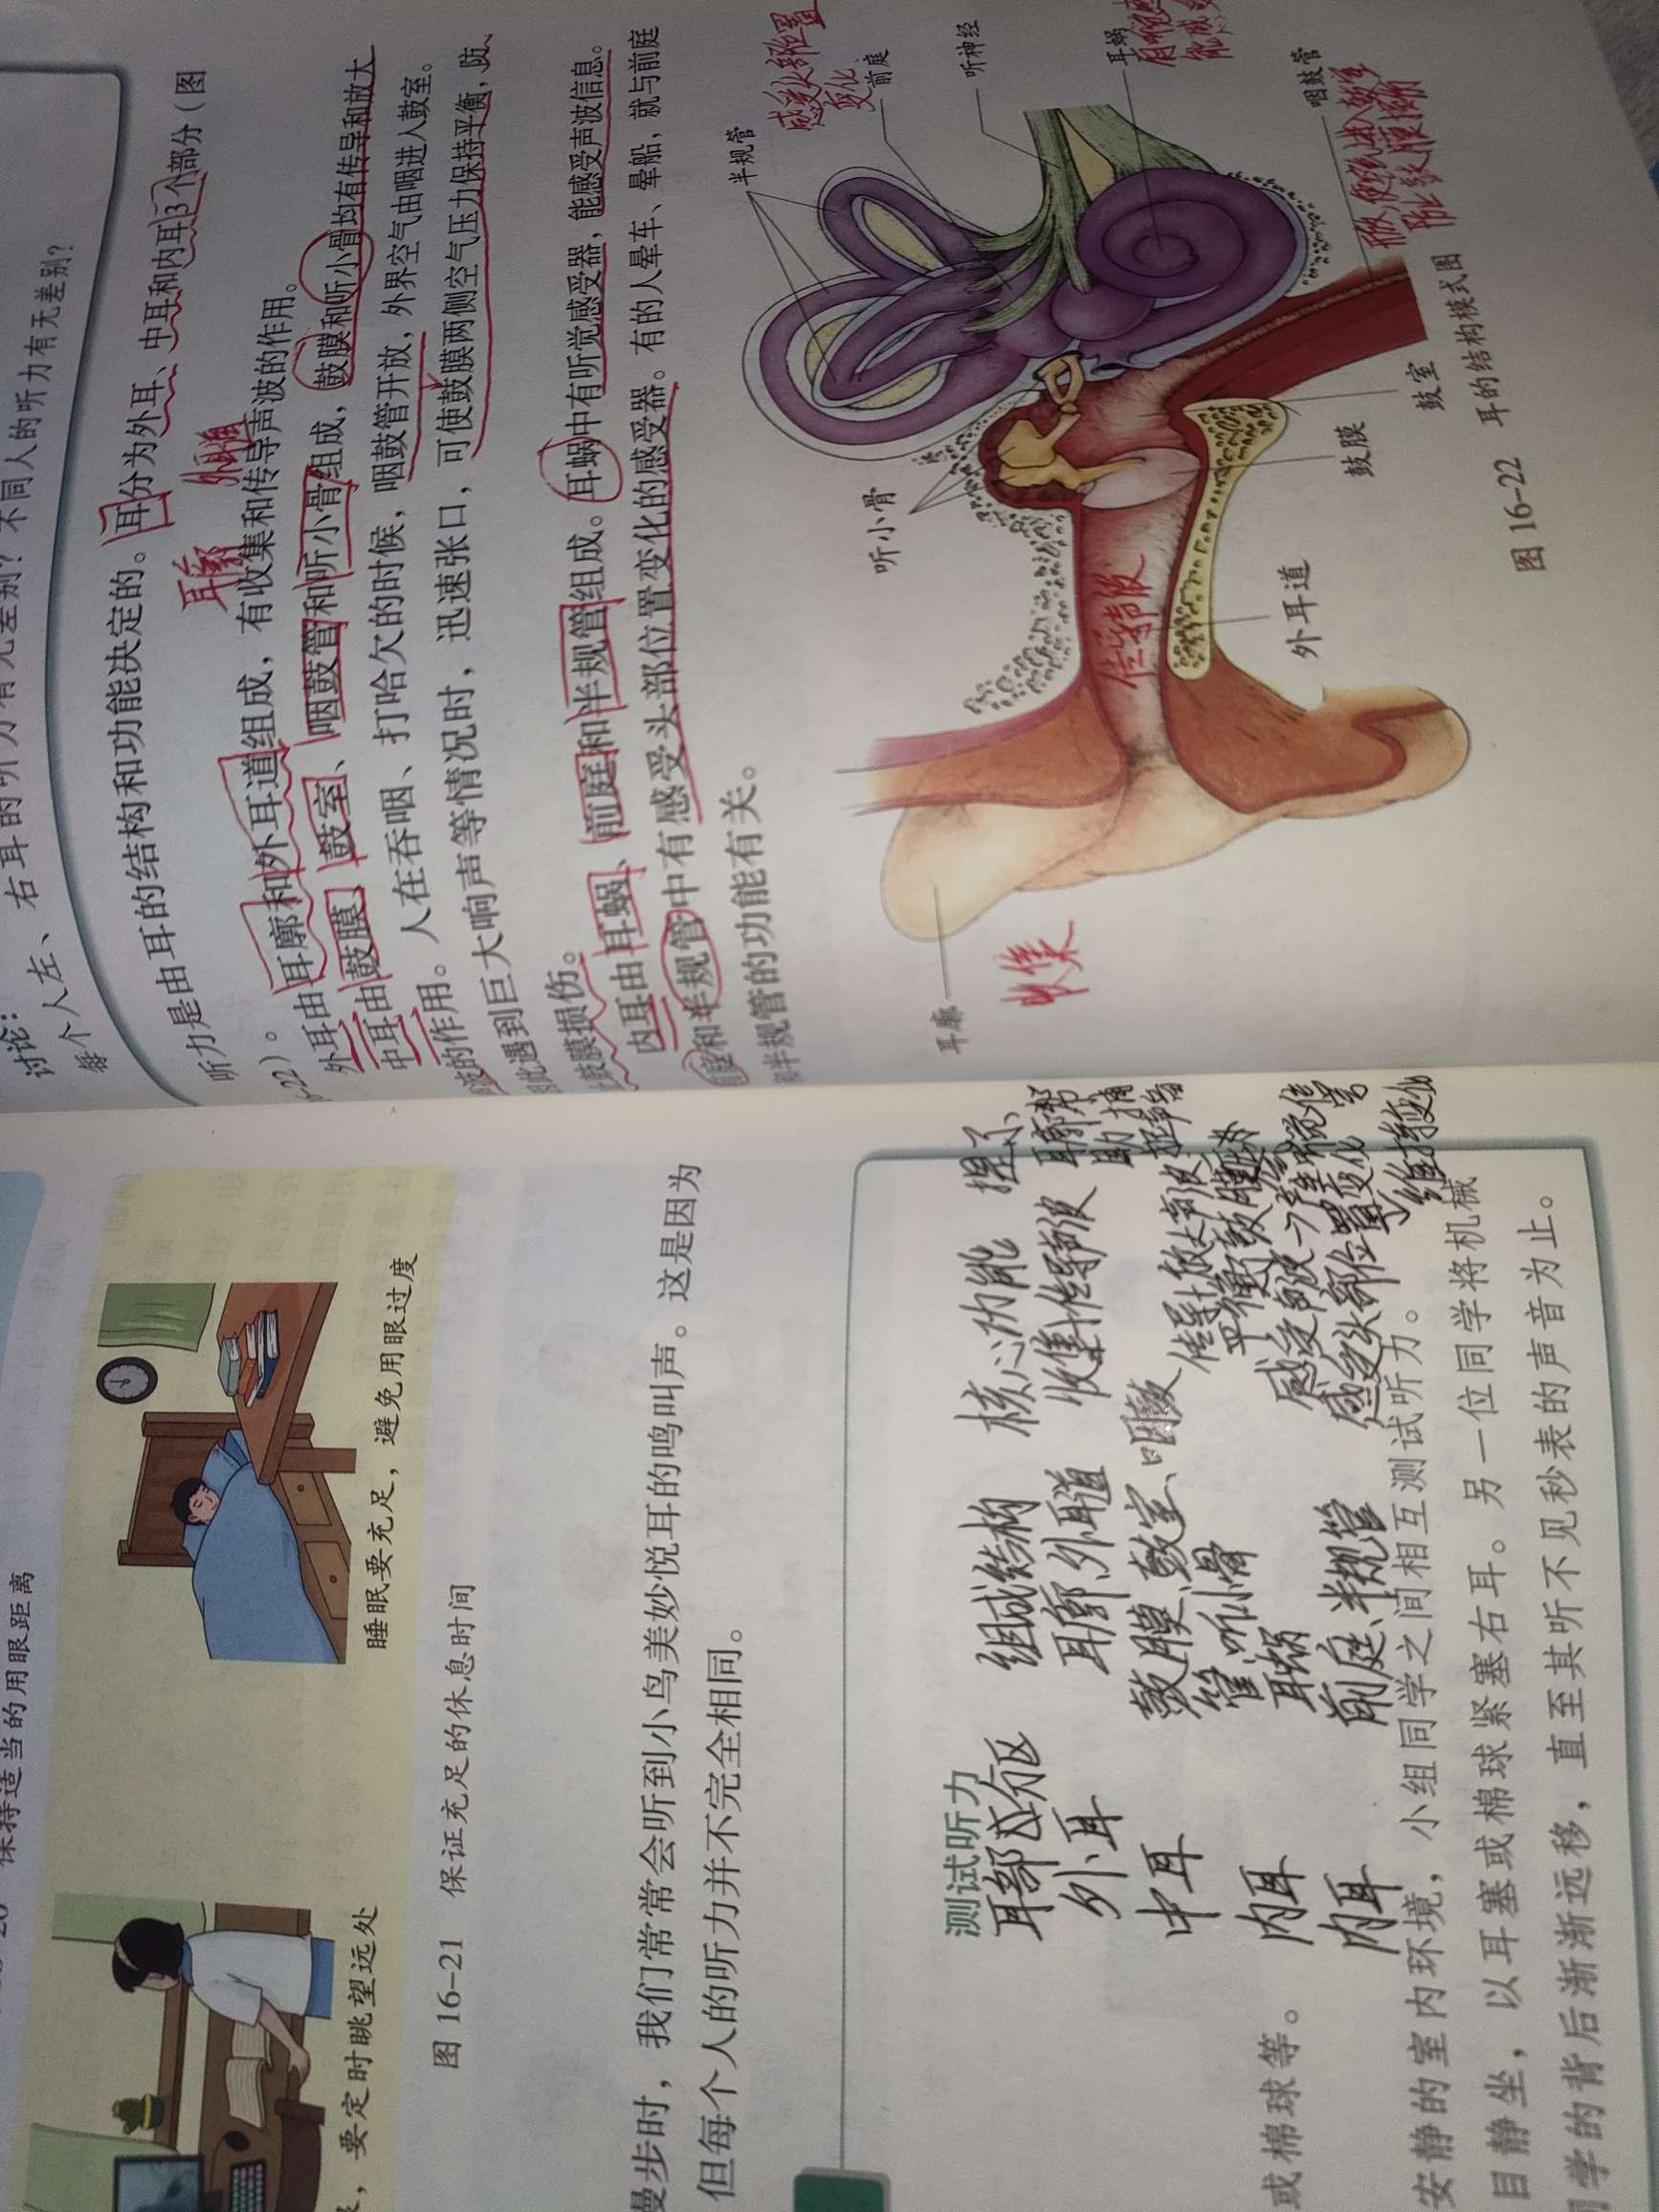 保持适当的用眼距离
要定时眺望远处
睡眠要充足，避免用眼过度
图 16-21 保证充足的休息时间
漫步时，我们常常会听到小鸟美妙悦耳的鸣叫声。这是因为
但每个人的听力并不完全相同。
测试听力
耳部位分区 组成结构 核心功能 提示
外耳 耳廓 外耳道 收集传导声波 耳廓帮助捕捉声音
中耳 鼓膜、鼓室、咽鼓管、听小骨 传导放大声波
内耳 耳蜗 感受声波
内耳 前庭、半规管 感受头部位置变化
或棉球等。
安静的室内环境，小组同学之间相互测试听力。
目静坐，以耳塞或棉球紧塞右耳。另一位同学将机械
学的背后渐渐远移，直至其听不见秒表的声音为止。
讨论：
每个人左、右耳的听力有无差别？不同人的听力有无差别？
听力是由耳的结构和功能决定的。耳分为外耳、中耳和内耳3个部分（图
22）。
耳廓 外耳道
外耳由耳廓和外耳道组成，有收集和传导声波的作用。
中耳由鼓膜、鼓室、咽鼓管和听小骨组成，鼓膜和听小骨均有传导和放大
的作用。人在吞咽、打哈欠的时候，咽鼓管开放，外界空气由咽进入鼓室。
此遇到巨大响声等情况时，迅速张口，可使鼓膜两侧空气压力保持平衡，防
鼓膜损伤。
内耳由耳蜗、前庭和半规管组成。耳蜗中有听觉感受器，能感受声波信息。
前庭和半规管中有感受头部位置变化的感受器。有的人晕车、晕船，就与前庭
和半规管的功能有关。
感受头部位置变化
半规管
前庭
听神经
耳蜗
咽鼓管
听小骨
传导声波
鼓室
鼓膜
外耳道
耳廓
收集
图 16-22 耳的结构模式图